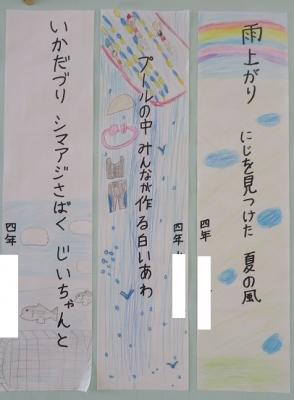 雨上がり にじを見つけた 夏の風
四年
プールの中 みんなが作る白いあわ
四年
いかだづり シマアジさばく じいちゃんと
四年